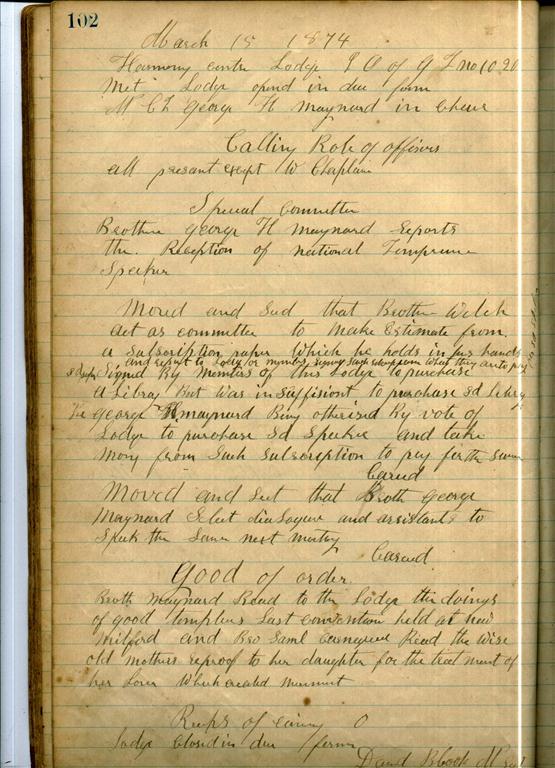 102
March 15 1874
Harmony centre Lodge I O of G T no 1020
Met Lodge opend in due form
W C T George H Maynard in Chair
Calling Role of officers
all presant except W Chaplain
Special Committee
Brother George H Maynard reports
the Reception of national Temprunc
Speaker
Moved and Sud that Brother Welch
act as committee to Make Estimate from
a Subscription paper Which he holds in his hands
and report to Lodge
Signed By Members of this Lodge to purchase
a Libray But was insuffisiont to purchase sd Libry
George H Maynard Being otherised By vote of
Lodge to purchase sd Speaker and take
Mony from Such Subscription to pay for the same
Caried
Moved and Sect that Broth George
Maynard Select dialogue and assistants to
Speak the Same next meeting
Caried
Good of order
Broth Maynard Read to the Lodge the doings
of good templers Last convention held at new
Milford and Bro Saml Read the Wise
old Mothers reproof to her daughter for the treatment of
her Lover Which created
Recps of evening 0
Lodge Closed in due form
David B Cook